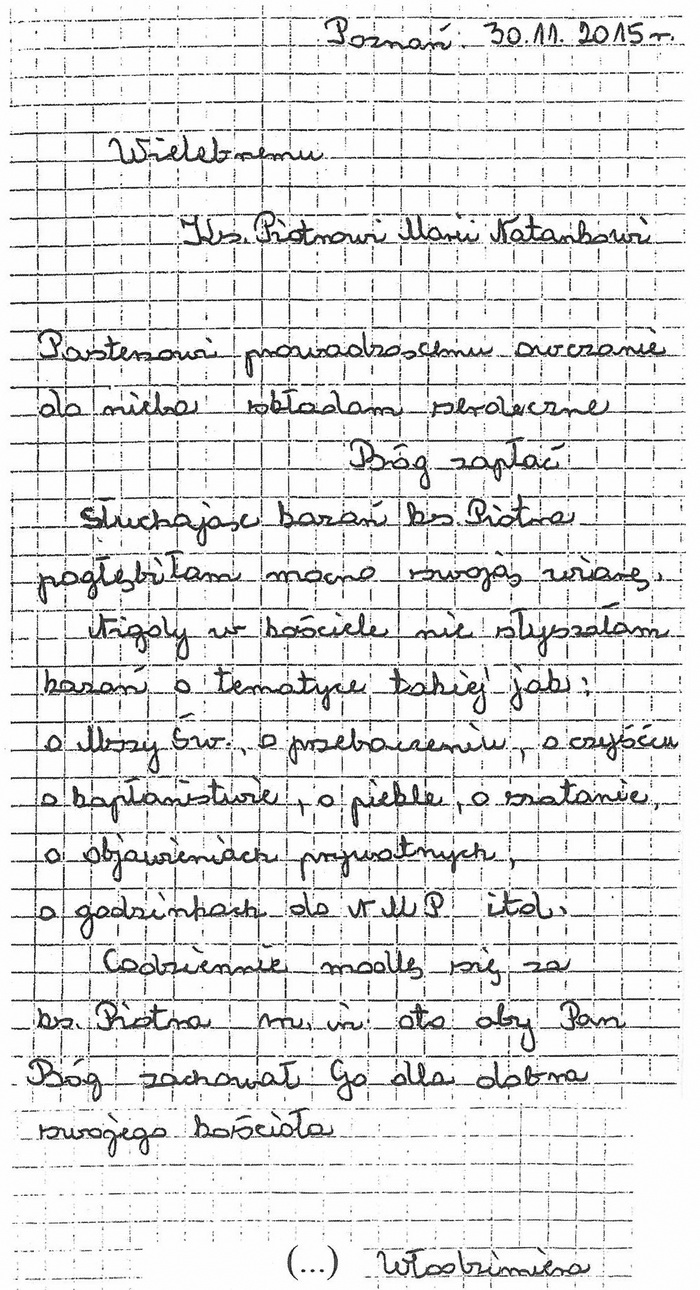 Poznań. 30.11.2015 r.
Wielebnemu
Ks. Piotrowi Marii Natankowi
Pasterzowi prowadzącemu owczarnie
do nieba składam serdeczne
Bóg zapłać
Słuchając kazań ks. Piotra
pogłębiłam mocno swoją wiarę.
Nigdy w kościele nie słyszałam
kazań o tematyce takiej jak:
o Mszy Św., o przebaczeniu, o czyśćcu
o kapłaństwie, o piekle, o szatanie,
o objawieniach prywatnych,
o godzinkach do NMP itd.
Codziennie modlę się za
ks. Piotra m. in. oto aby Pan
Bóg zachował Go dla dobra
swojego kościoła
(...) Włodzimiera